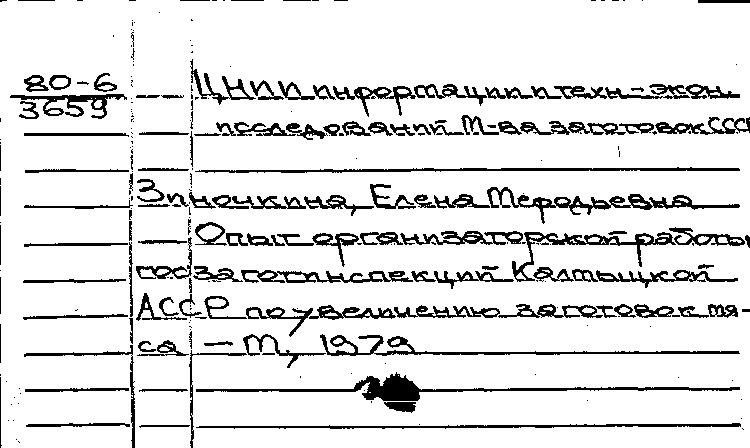 80-6
3659
ЦНИИ информации и техн-экон.
исследований М-ва заготовок СССР
Зиночкина, Елена Мефодьевна
Опыт организаторской работы
госзаготинспекций Калмыцкой
АССР по увеличению заготовок мя-
са — М, 1979